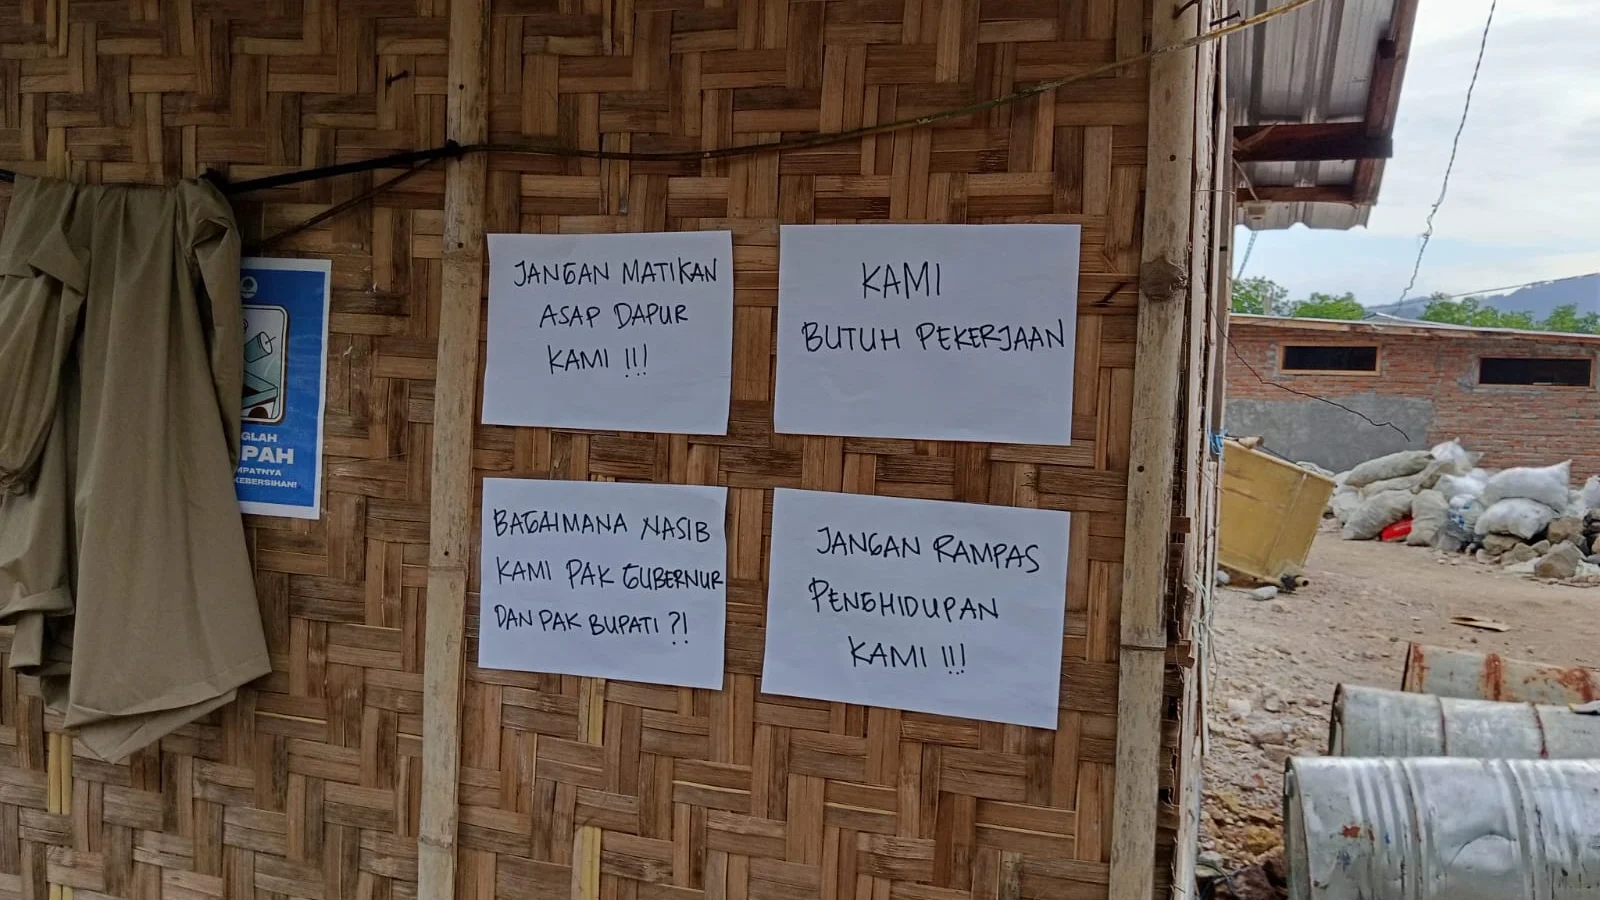 JANGAN MATIKAN
ASAP DAPUR
KAMI !!!
KAMI
BUTUH PEKERJAAN
BAGAIMANA NASIB
KAMI PAK GUBERNUR
DAN PAK BUPATI ?!
JANGAN RAMPAS
PENGHIDUPAN
KAMI !!!
GLAH
PAH
MPATNYA
KEBERSIHAN!